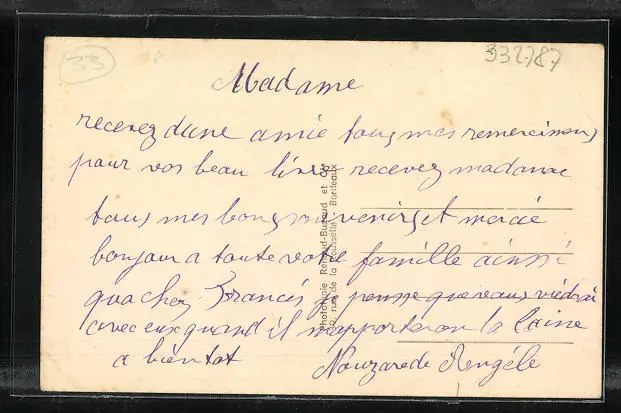 33
332787
Madame
recevez dune amie tous mes remerciemens
pour vos beau livre recevez madame
tous mes bon souvenirs et mercie
bonjour a toute votre famille ainsi
qua chez Francés je pense que vous viédrai
avec eux quand il mapporteron la laine
a bientot Nouzarede Angéle
Phototypie et Cie
rue de la Rousselle, Bordeaux